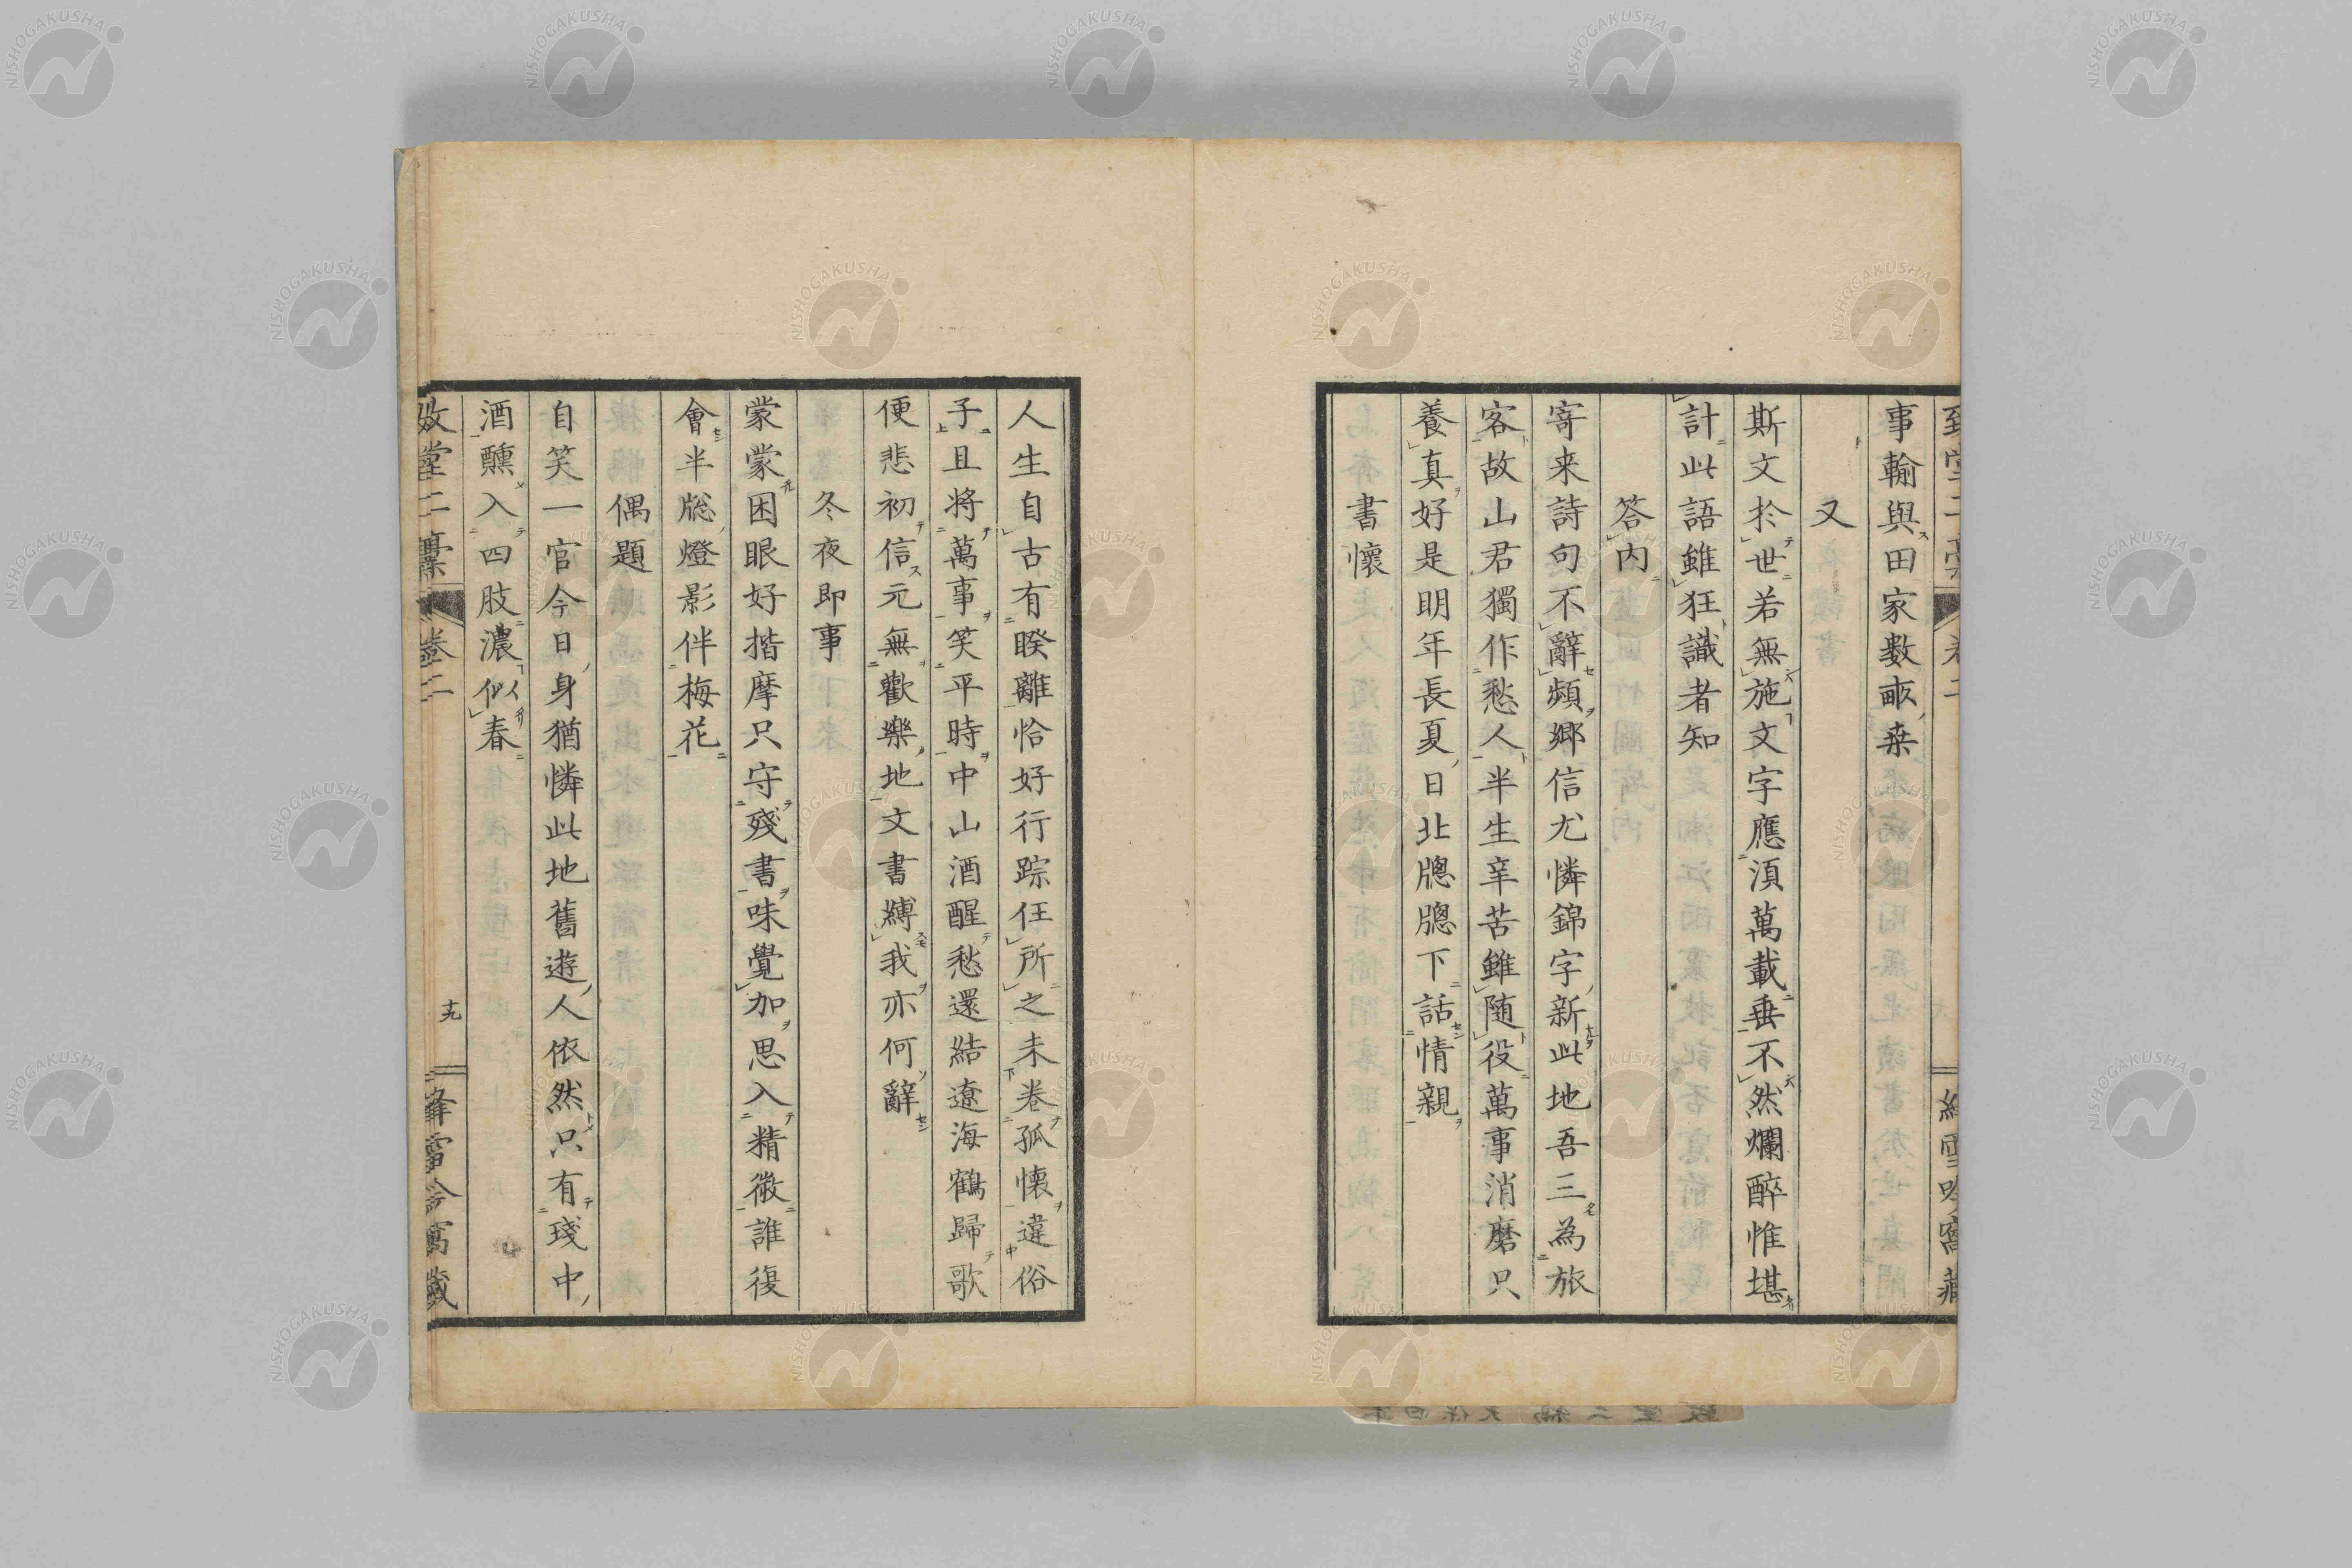 事輸與田家數畝桒
又
斯文於世若無施文字應須萬載垂不然爛醉惟堪
計此語雖狂識者知
答内
寄来詩句不辭頻鄉信尤憐錦字新此地吾三為旅
客故山君獨作愁人半生辛苦雖随役萬事消磨只
養真好是明年長夏日北牕牕下話情親
書懷
人生自古有暌離恰好行踪任所之未卷孤懷違俗
子且將萬事笑平時中山酒醒愁還結遼海鶴歸歌
便悲初信元無歡樂地文書縛我亦何辭
冬夜即事
蒙蒙困眼好揩摩只守殘書味覺加思入精微誰復
會半牕燈影伴梅花
偶題
自笑一官今日身猶憐此地舊遊人依然只有琖中
酒醺入四肢濃似春
二稾 卷二
十九
NISHOGAKUSHA